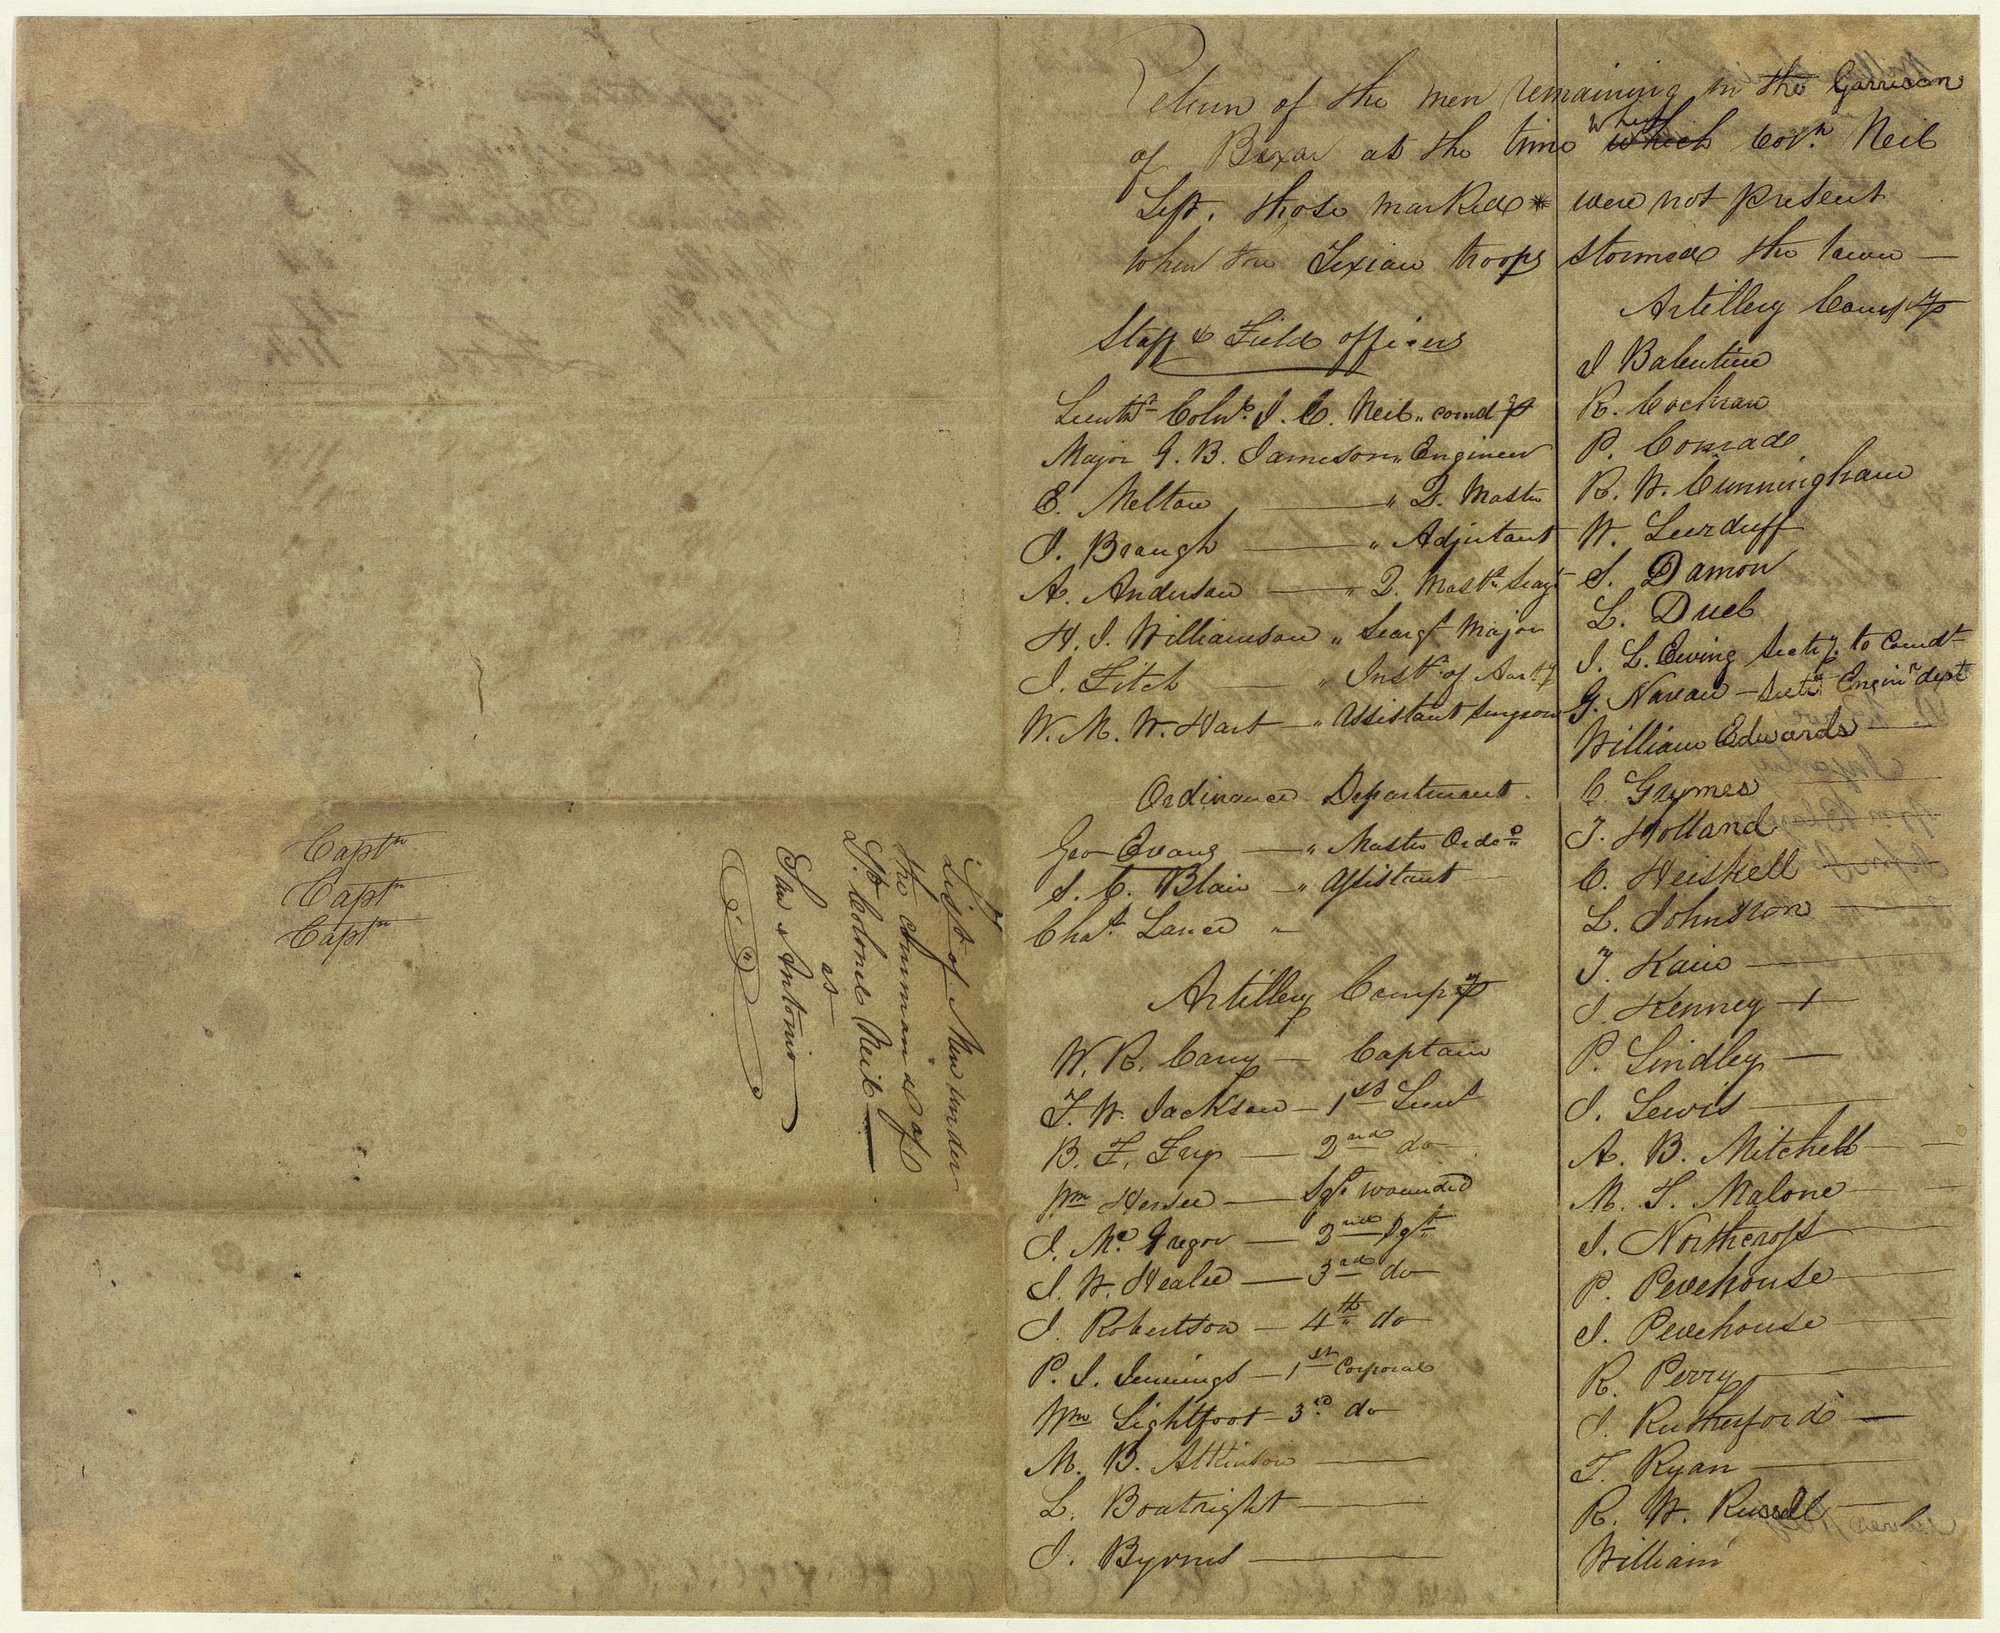 Return of the men remaining in the Garrison
of Bexar at the time which when Col.n Neil
Left. those marked * were not present
when the Texian troops stormed the town —
Staff & Field officers
Lieutn.t Coln.l J. C. Neil „ comd.g
Major G. B. Jameson „ Engineer
E. Melton — „ Q. Master
J. Baugh — „ Adjutant
A. Anderson — „ Q. Mast.r Seargt
H. J. Williamson „ Seargt Major
J. Fitch — „ Inst.r of Art.y
W. M. W. Hart — „ Assistant Surgeon
Ordinance Department.
Geo Evans — „ Master Ord.e
S. C. Blair — „ Assistant —
Chas. Lance „
Artillery Comp.y
W. R. Cary — Captain
T. W. Jackson — 1st Lieut
B. F. Fry — 2nd do
Wm Hersee — Sgt. wounded
J. Mc Gregor — 2nd Sgt
J. W. Healee — 3rd do
J. Robertson — 4th do
P. J. Jennings — 1st Corporal
Wm Lightfoot — 3rd do
M. B. Atkinson —
L. Boatright —
J. Byrns —
Artillery Comp.y
J Balentine
R. Cochran
P. Conrad
R. W. Cunningham
W. Lurduff
S. Damon
L. Duel
J. L. Ewing Secty. to Comdt
G. Navan — Secty Engin.r dept
William Edwards —
C. Grymes
T. Holland
C. Heiskell —
L. Johnson —
T. Kain —
J. Kenney —
P. Lindley —
J. Lewis —
A. B. Mitchell —
M. T. Malone —
J. Northcross
P. Pevehouse —
J. Pevehouse —
R. Perry —
J. Rutherford —
T. Ryan —
R. W. Russell —
William
List of Men under
the command of
Lt. Colonel Neil —
at
San Antonio
Captn
Captn
Captn